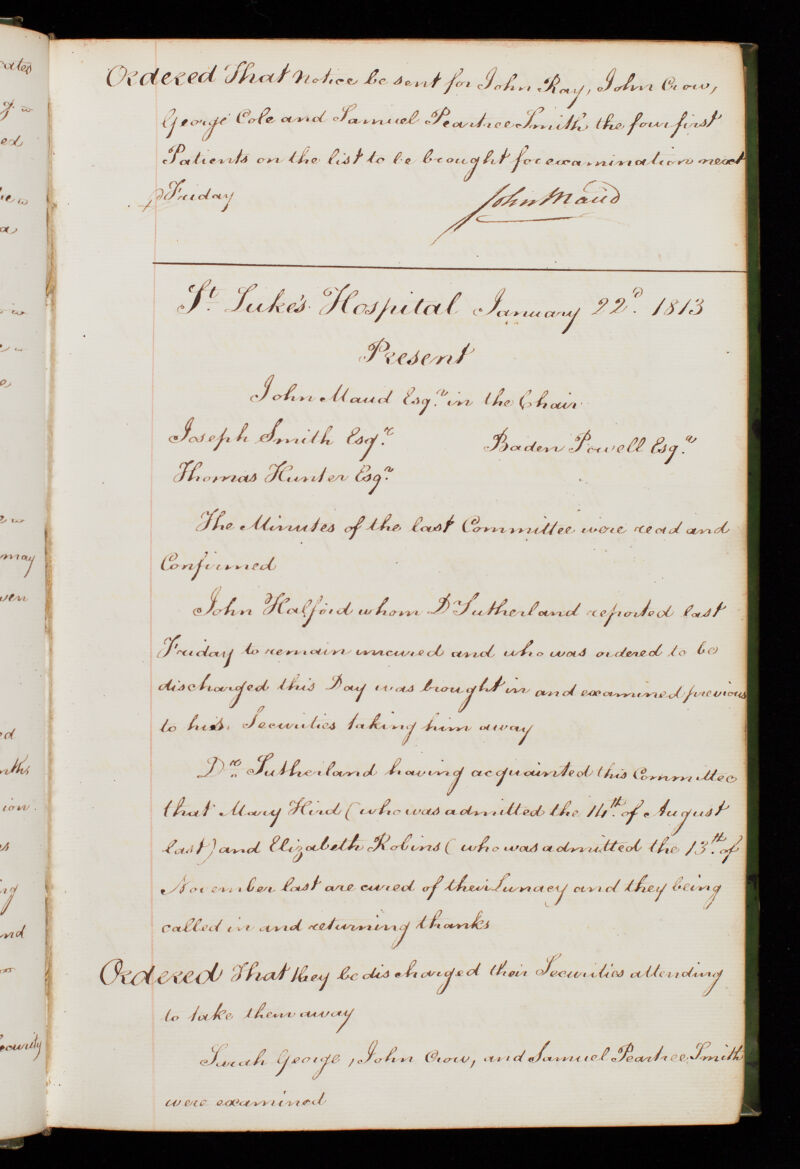 Ordered That Notice be sent for John Ray, John Crow,
George Cole and Samuel Peartree Smith the four first
Patients on the list to be brought for examination next
Friday
John Maud
St. Luke's Hospital January 22d. 1813
Present
John Maud Esqr. in the Chair
Joseph Smith Esqr. Baden Powell Esqr.
Thomas Hunter Esqr.
The Minutes of the last Committee were read and
Confirmed
John Halford whom Dr Sutherland reported last
Friday to remain uncured and who was ordered to be
discharged this Day was brought in and examined previous
to his Securities taking him away
Dr. Sutherland having acquainted this Committee
that Mary Hird (who was admitted the 14th. of August
last) and Elizabeth Robins (who was admitted the 13th. of
November last are cured of their Lunacy and they being
called in and returning thanks
Ordered That they be discharged their Securities attending
to take them away
Sarah George, John Crow, and Samuel Peartree Smith
were examined
may
and